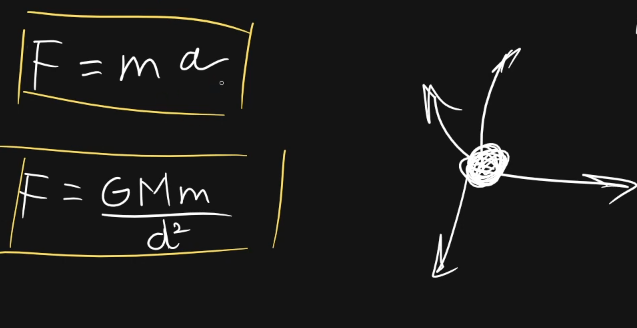 F = ma
F = GMm
d²